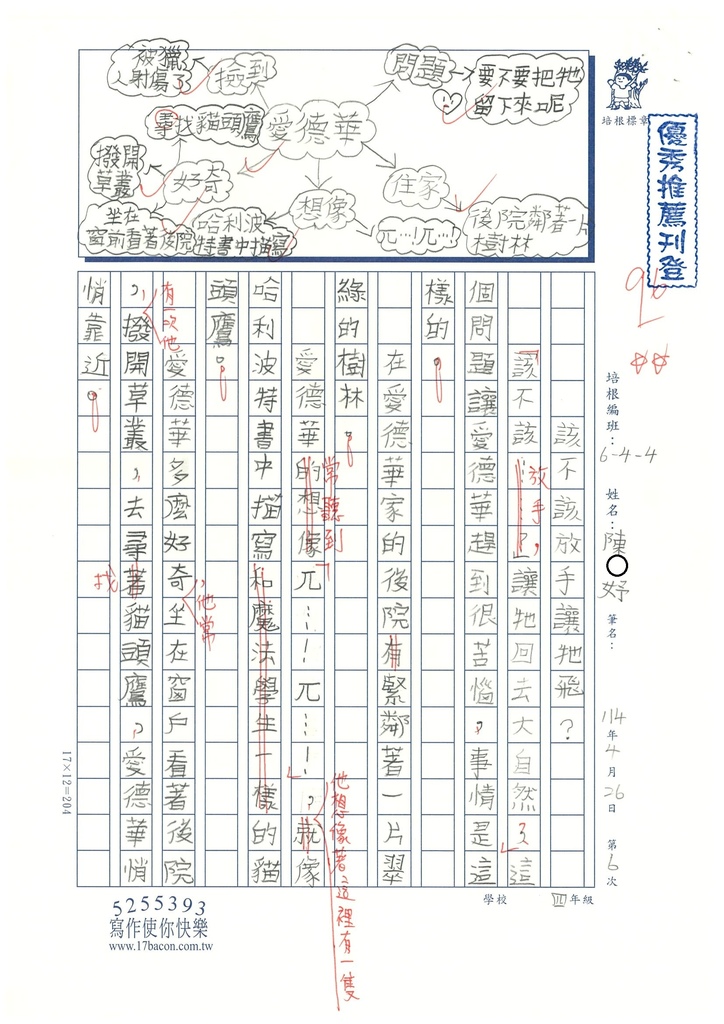 被獵人射傷了
撿到
問題
要不要把牠留下來呢
尋找貓頭鷹
愛德華
撥開草叢
好奇
想像
住家
坐在窗前看著後院
哈利波特書中描寫
ㄫ…!ㄫ…!
後院鄰著一片樹林
培根標章
優秀推薦刊登
96
培根編班：6-4-4
姓名：陳○妤
筆名：
114年4月26日 第6次
四年級
學校
該不該放手讓牠飛？
該不該…了讓牠回去大自然了這
放手，
個問題讓愛德華趕到很苦惱。事情是這
樣的。
在愛德華家的後院有緊鄰著一片翠
綠的樹林。
愛德華的想像ㄫ…！ㄫ…！，就像
常聽到
他想像著這裡有一隻
哈利波特書中描寫和魔法學生一樣的貓
頭鷹。
愛德華多麼好奇坐在窗戶看著後院
，他常
有一次他
，撥開草叢，去尋著貓頭鷹。愛德華悄
找
悄靠近。
17×12=204
5255393
寫作使你快樂
www.17bacon.com.tw